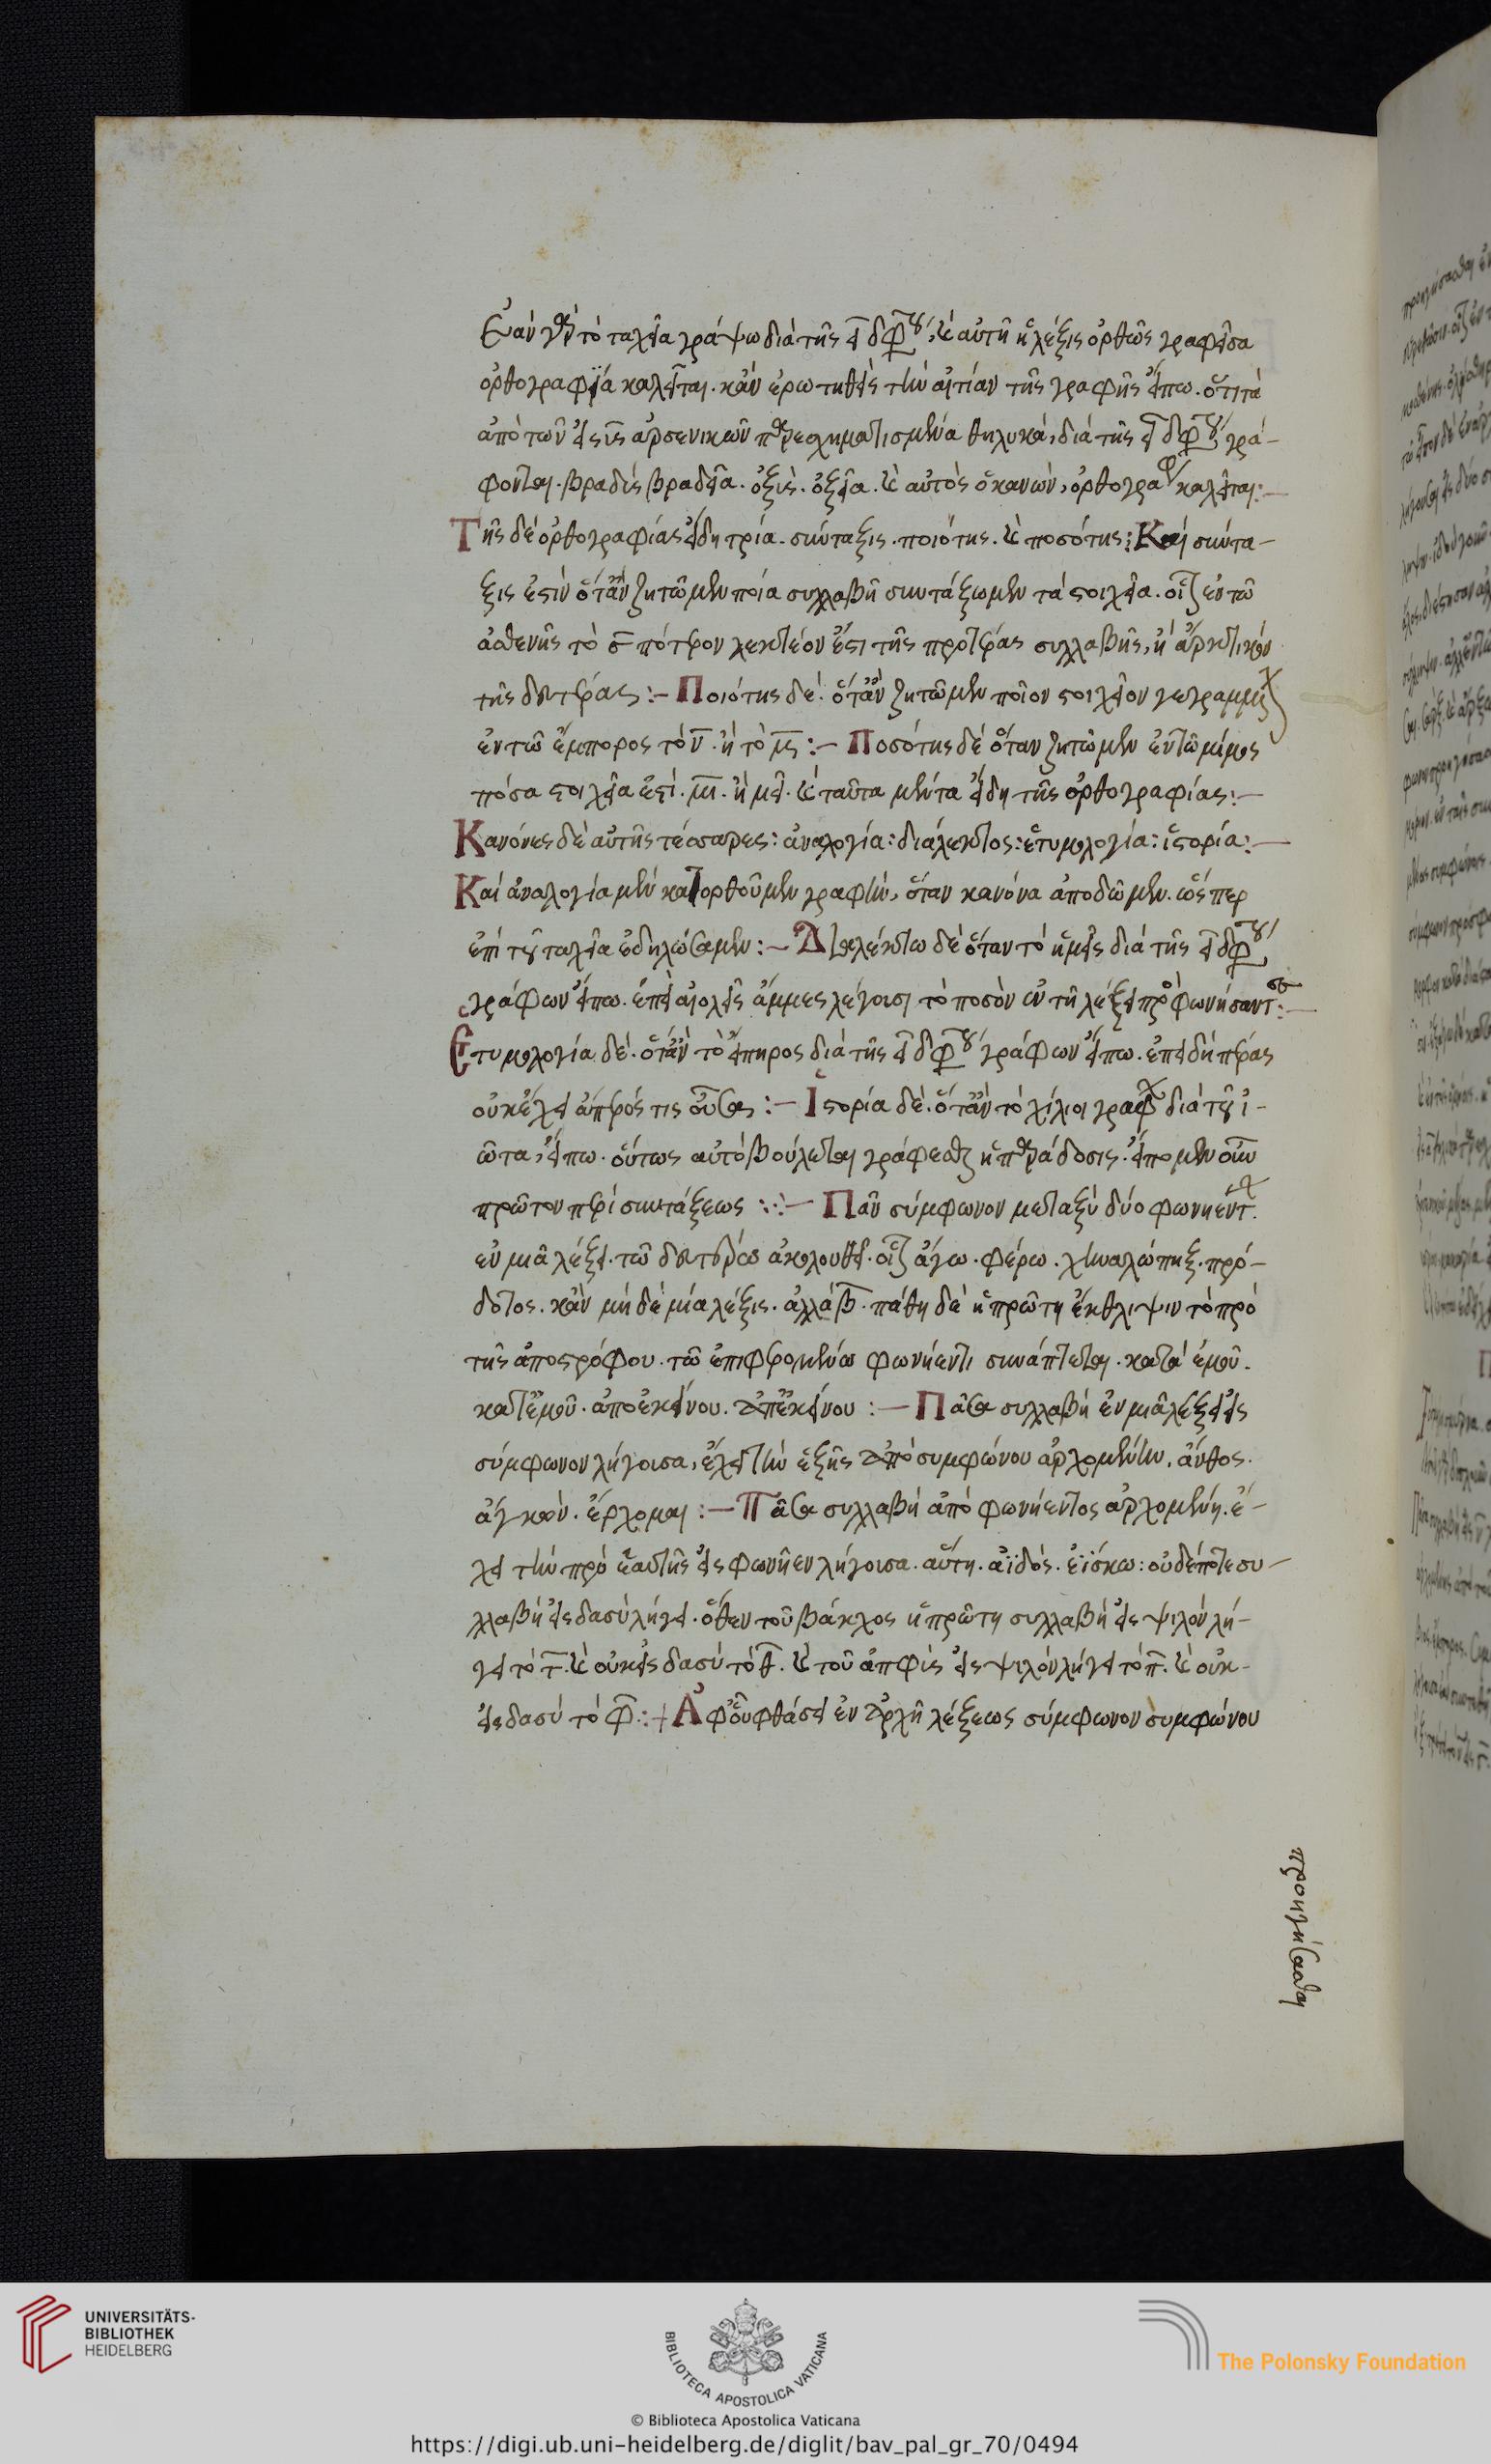 Ἐὰν γὰρ τὸ ταχεῖα γράψω διὰ τῆς ει διφθόγγου, καὶ αὐτὴ ἡ λέξις ὀρθῶς γραφεῖσα
ὀρθογραφία καλεῖται. κἂν ἐρωτηθεὶς τὴν αἰτίαν τῆς γραφῆς εἴπω. ὅτι τὰ
ἀπὸ τῶν εἰς υς ἀρσενικῶν παρεσχηματισμένα θηλυκά, διὰ τῆς ει διφθόγγου γρά-
φονται. βραδὺς βραδεῖα. ὀξὺς. ὀξεῖα. καὶ αὐτὸς ὁ κανών, ὀρθογραφία καλεῖται:—
Τῆς δὲ ὀρθογραφίας εἴδη τρία. σύνταξις. ποιότης. καὶ ποσότης: Καὶ σύντα-
ξις ἐστὶν ὅταν ζητῶμεν ποία συλλαβῆ συντάξωμεν τὰ στοιχεῖα. οἷον ἐν τῶ
ἀσθενὴς τὸ σ πότερον ληκτέον ἐστὶ τῆς προτέρας συλλαβῆς, ἢ ἀρκτικὸν
τῆς δευτέρας:— Ποιότης δέ. ὅταν ζητῶμεν ποῖον στοιχεῖον
ἐν τῶ ἔμπορος τὸ ν. ἢ τὸ μ:— Ποσότης δὲ ὅταν ζητῶμεν ἐν τῶ μῖμος
πόσα στοιχεῖα ἐστί. μι. ἢ μει. καὶ ταῦτα μὲν τὰ εἴδη τῆς ὀρθογραφίας:—
Κανόνες δὲ αὐτῆς τέσσαρες: ἀναλογία: διάλεκτος: ἐτυμολογία: ἱστορία:—
Καὶ ἀναλογία μὲν κατορθοῦμεν γραφὴν, ὅταν κανόνα ἀποδῶμεν. ὥσπερ
ἐπὶ τοῦ ταχεῖα ἐδηλώσαμεν:— Διαλέκτω δὲ ὅταν τὸ ἡμεῖς διὰ τῆς ει διφθόγγου
γράφων εἴπω. ἐπεὶ αἰολεῖς ἄμμες λέγουσι τὸ ποσὸν ἐν τῆ λέξει
Ἐτυμολογία δέ. ὅταν τὸ ἤπειρος διὰ τῆς ει διφθόγγου γράφων εἴπω. ἐπειδὴ πέρας
οὐκ ἔχει ἄπειρός τις οὖσα:— Ἱστορία δὲ. ὅταν τὸ χίλιοι γράφων διὰ τοῦ ἰ-
ῶτα, εἴπω. οὕτως αὐτὸ βούλεται γράφεσθαι ἡ παράδοσις. εἴπωμεν οὖν
πρῶτον περὶ συντάξεως:— Πᾶν σύμφωνον μεταξὺ δύο φωνηέντων
ἐν μιᾶ λέξει. τῶ δευτέρω ἀκολουθεῖ. οἷον ἄγω. φέρω. χηναλώπηξ. πρό-
δοτος. κἂν μὴ δὲ μία λέξις. ἀλλὰ β. πάθη δὲ ἡ πρώτη ἔκθλιψιν τὸ πρὸ
τῆς ἀποστρόφου. τῶ ἐπιφερομένω φωνήεντι συνάπτεται. κατὰ ἐμοῦ.
κατ' ἐμοῦ. ἀπὸ ἐκείνου. ἀπ' ἐκείνου:— Πᾶσα συλλαβὴ ἐν μιᾶ λέξει εἰς
σύμφωνον λήγουσα, ἔχει τὴν ἑξῆς ἀπὸ συμφώνου ἀρχομένην, ἄνθος.
ἀγκών. ἔρχομαι:— Πᾶσα συλλαβὴ ἀπὸ φωνήεντος ἀρχομένη. ἔ-
χει τὴν πρὸ ἑαυτῆς εἰς φωνῆεν λήγουσα. αὕτη. ἀϊδός. ἐΐσκω: οὐδέποτε συ-
λλαβὴ εἰς δασὺ λήγει. ὅθεν τοῦ βάκχος ἡ πρώτη συλλαβὴ εἰς ψιλὸν λή-
γει τὸ τ. καὶ οὐκ εἰς δασὺ τὸ θ. καὶ τοῦ ἀπφὺς εἰς ψιλὸν λήγει τὸ π. καὶ οὐκ-
εἰς δασὺ τὸ φ:+ Ἀφ' οὗ φθάσει ἐν ἀρχῆ λέξεως σύμφωνον συμφώνου
προηγήσασθαι
UNIVERSITÄTS-
BIBLIOTHEK
HEIDELBERG
BIBLIOTECA APOSTOLICA VATICANA
The Polonsky Foundation
© Biblioteca Apostolica Vaticana
https://digi.ub.uni-heidelberg.de/diglit/bav_pal_gr_70/0494